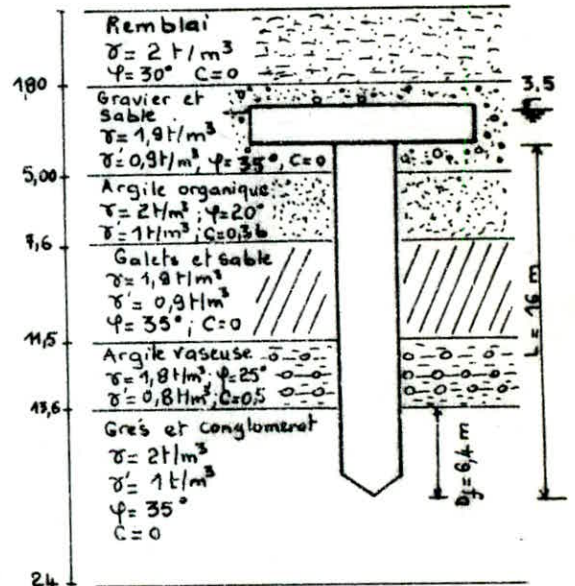 Remblai
γ = 2 t/m³
φ = 30° C = 0
1,80
3,5
Gravier et
sable
γ = 1,9 t/m³
γ' = 0,9 t/m³, φ = 35°, C = 0
5,00
Argile organique
γ = 2 t/m³ ; φ = 20°
γ' = 1 t/m³ ; C = 0,36
7,6
Galets et sable
γ = 1,9 t/m³
γ' = 0,9 t/m³
φ = 35° ; C = 0
L = 16 m
11,5
Argile vaseuse
γ = 1,8 t/m³ φ = 25°
γ' = 0,8 t/m³ C = 0,5
13,6
Grés et conglomerat
γ = 2 t/m³
γ' = 1 t/m³
φ = 35°
C = 0
Df = 6,4 m
24